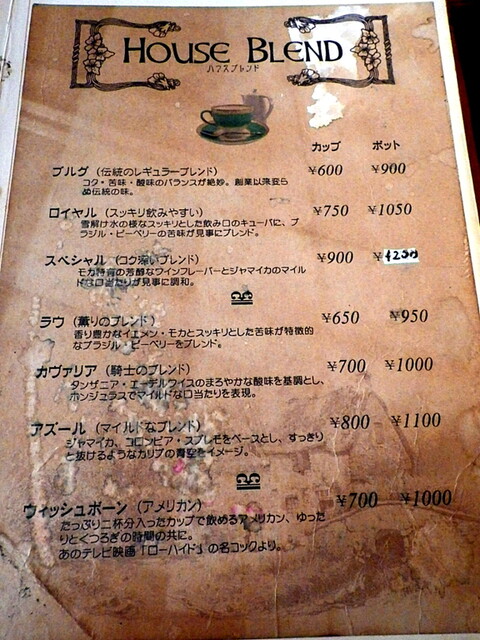 HOUSE BLEND
ハウスブレンド
カップ ポット
ブルグ (伝統のレギュラーブレンド) ¥600 ¥900
コク・苦味・酸味のバランスが絶妙。創業以来変ら
ぬ伝統の味。
ロイヤル (スッキリ飲みやすい) ¥750 ¥1050
雪解け水の様なスッキリとした飲み口のキューバに、ブ
ラジル・ピーベリーの苦味が見事にブレンド。
スペシャル (コク深いブレンド) ¥900 ¥1200
モカ特有の芳醇なワインフレーバーとジャマイカのマイル
ドな口当たりが見事に調和。
ラウ (薫りのブレンド) ¥650 ¥950
香り豊かなイエメン・モカとスッキリとした苦味が特徴的
なブラジル・ピーベリーをブレンド。
カヴァリア (騎士のブレンド) ¥700 ¥1000
タンザニア・エーデルワイスのまろやかな酸味を基調とし、
ホンジュラスでマイルドな口当たりを表現。
アズール (マイルドなブレンド) ¥800 ¥1100
ジャマイカ、コロンビア・スプレモをベースとし、すっきり
と抜けるようなカリブの青空をイメージ。
ウィッシュボーン (アメリカン) ¥700 ¥1000
たっぷり二杯分入ったカップで飲めるアメリカン、ゆった
りとくつろぎの時間の共に。
あのテレビ映画「ローハイド」の名コックより。